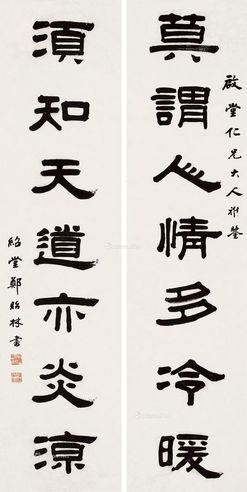 啟堂仁兄大人雅鑒
莫謂人情多冷暖
須知天道亦炎涼
紹堂鄭貽林書